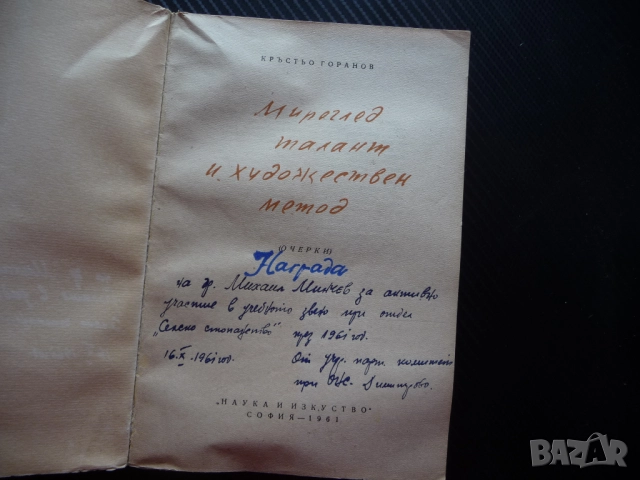 КРЪСТЬО ГОРАНОВ
Мироглед
талант
и художествен
метод
(ОЧЕРКИ)
Награда
на др. Михаил Минчев за активно
участие в учебното звено при отдел
„Селско стопанство" през 1961 год.
16.X.1961 год. От парт. комитет
при
„НАУКА И ИЗКУСТВО"
СОФИЯ — 1961
BAZAR.bg